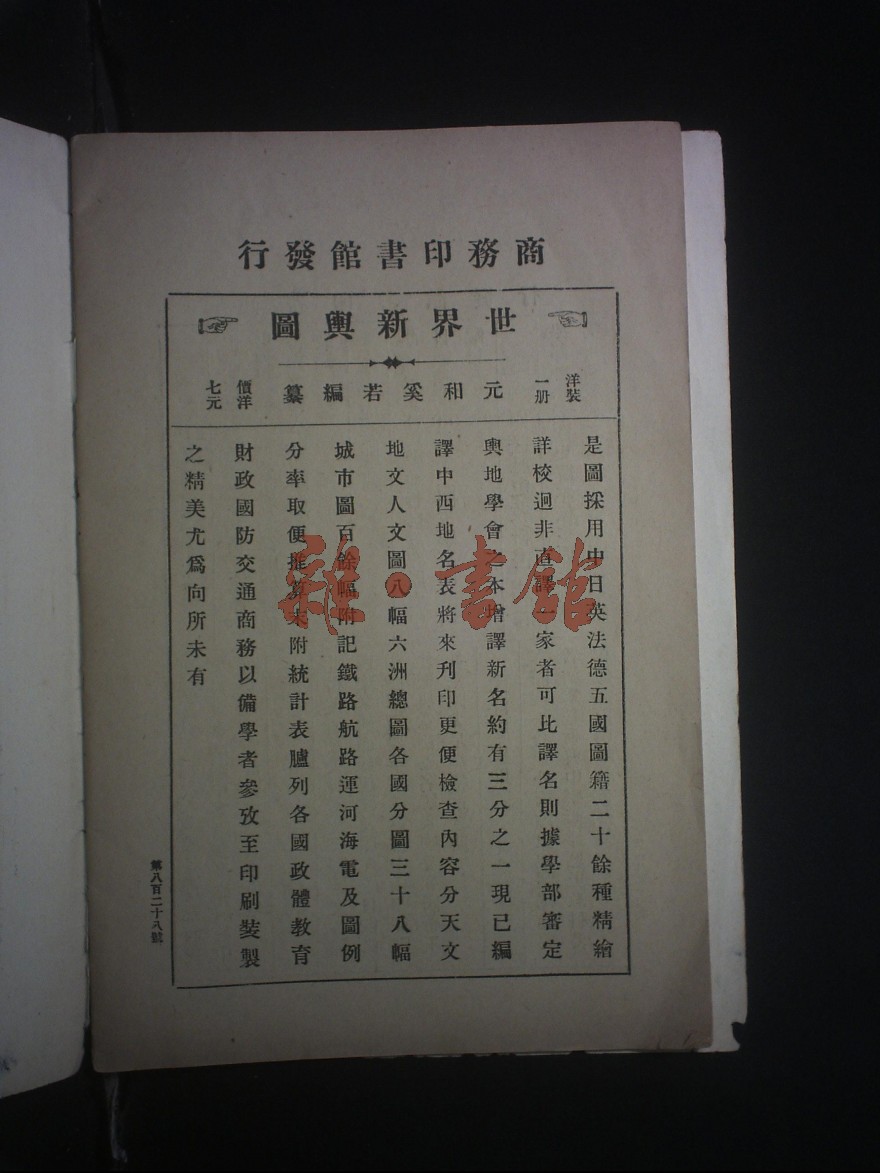 商務印書館發行
世界新輿圖
洋裝
一册
元和奚若編纂
價洋
七元
是圖採用中日英法德五國圖籍二十餘種精繪
詳校迥非直譯一家者可比譯名則據學部審定
輿地學會之本增譯新名約有三分之一現已編
譯中西地名表將來刋印更便檢查內容分天文
地文人文圖八幅六洲總圖各國分圖三十八幅
城市圖百餘幅附記鐵路航路運河海電及圖例
分率取便推算末附統計表臚列各國政體教育
財政國防交通商務以備學者參攷至印刷裝製
之精美尤爲向所未有
第八百二十八號
雜·書館